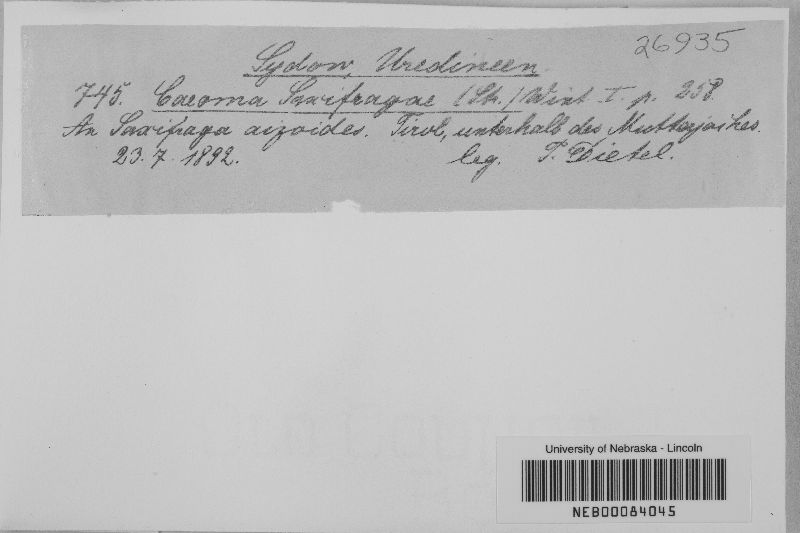 26935
Sydow, Uredineen.
745. Caeoma Saxifragae (Str.) Wint. I. p. 258.
An Saxifraga aizoides. Tirol, unterhalb des Mutterjoches.
23. 7. 1892. leg. P. Dietel.
University of Nebraska - Lincoln
NEB00084045